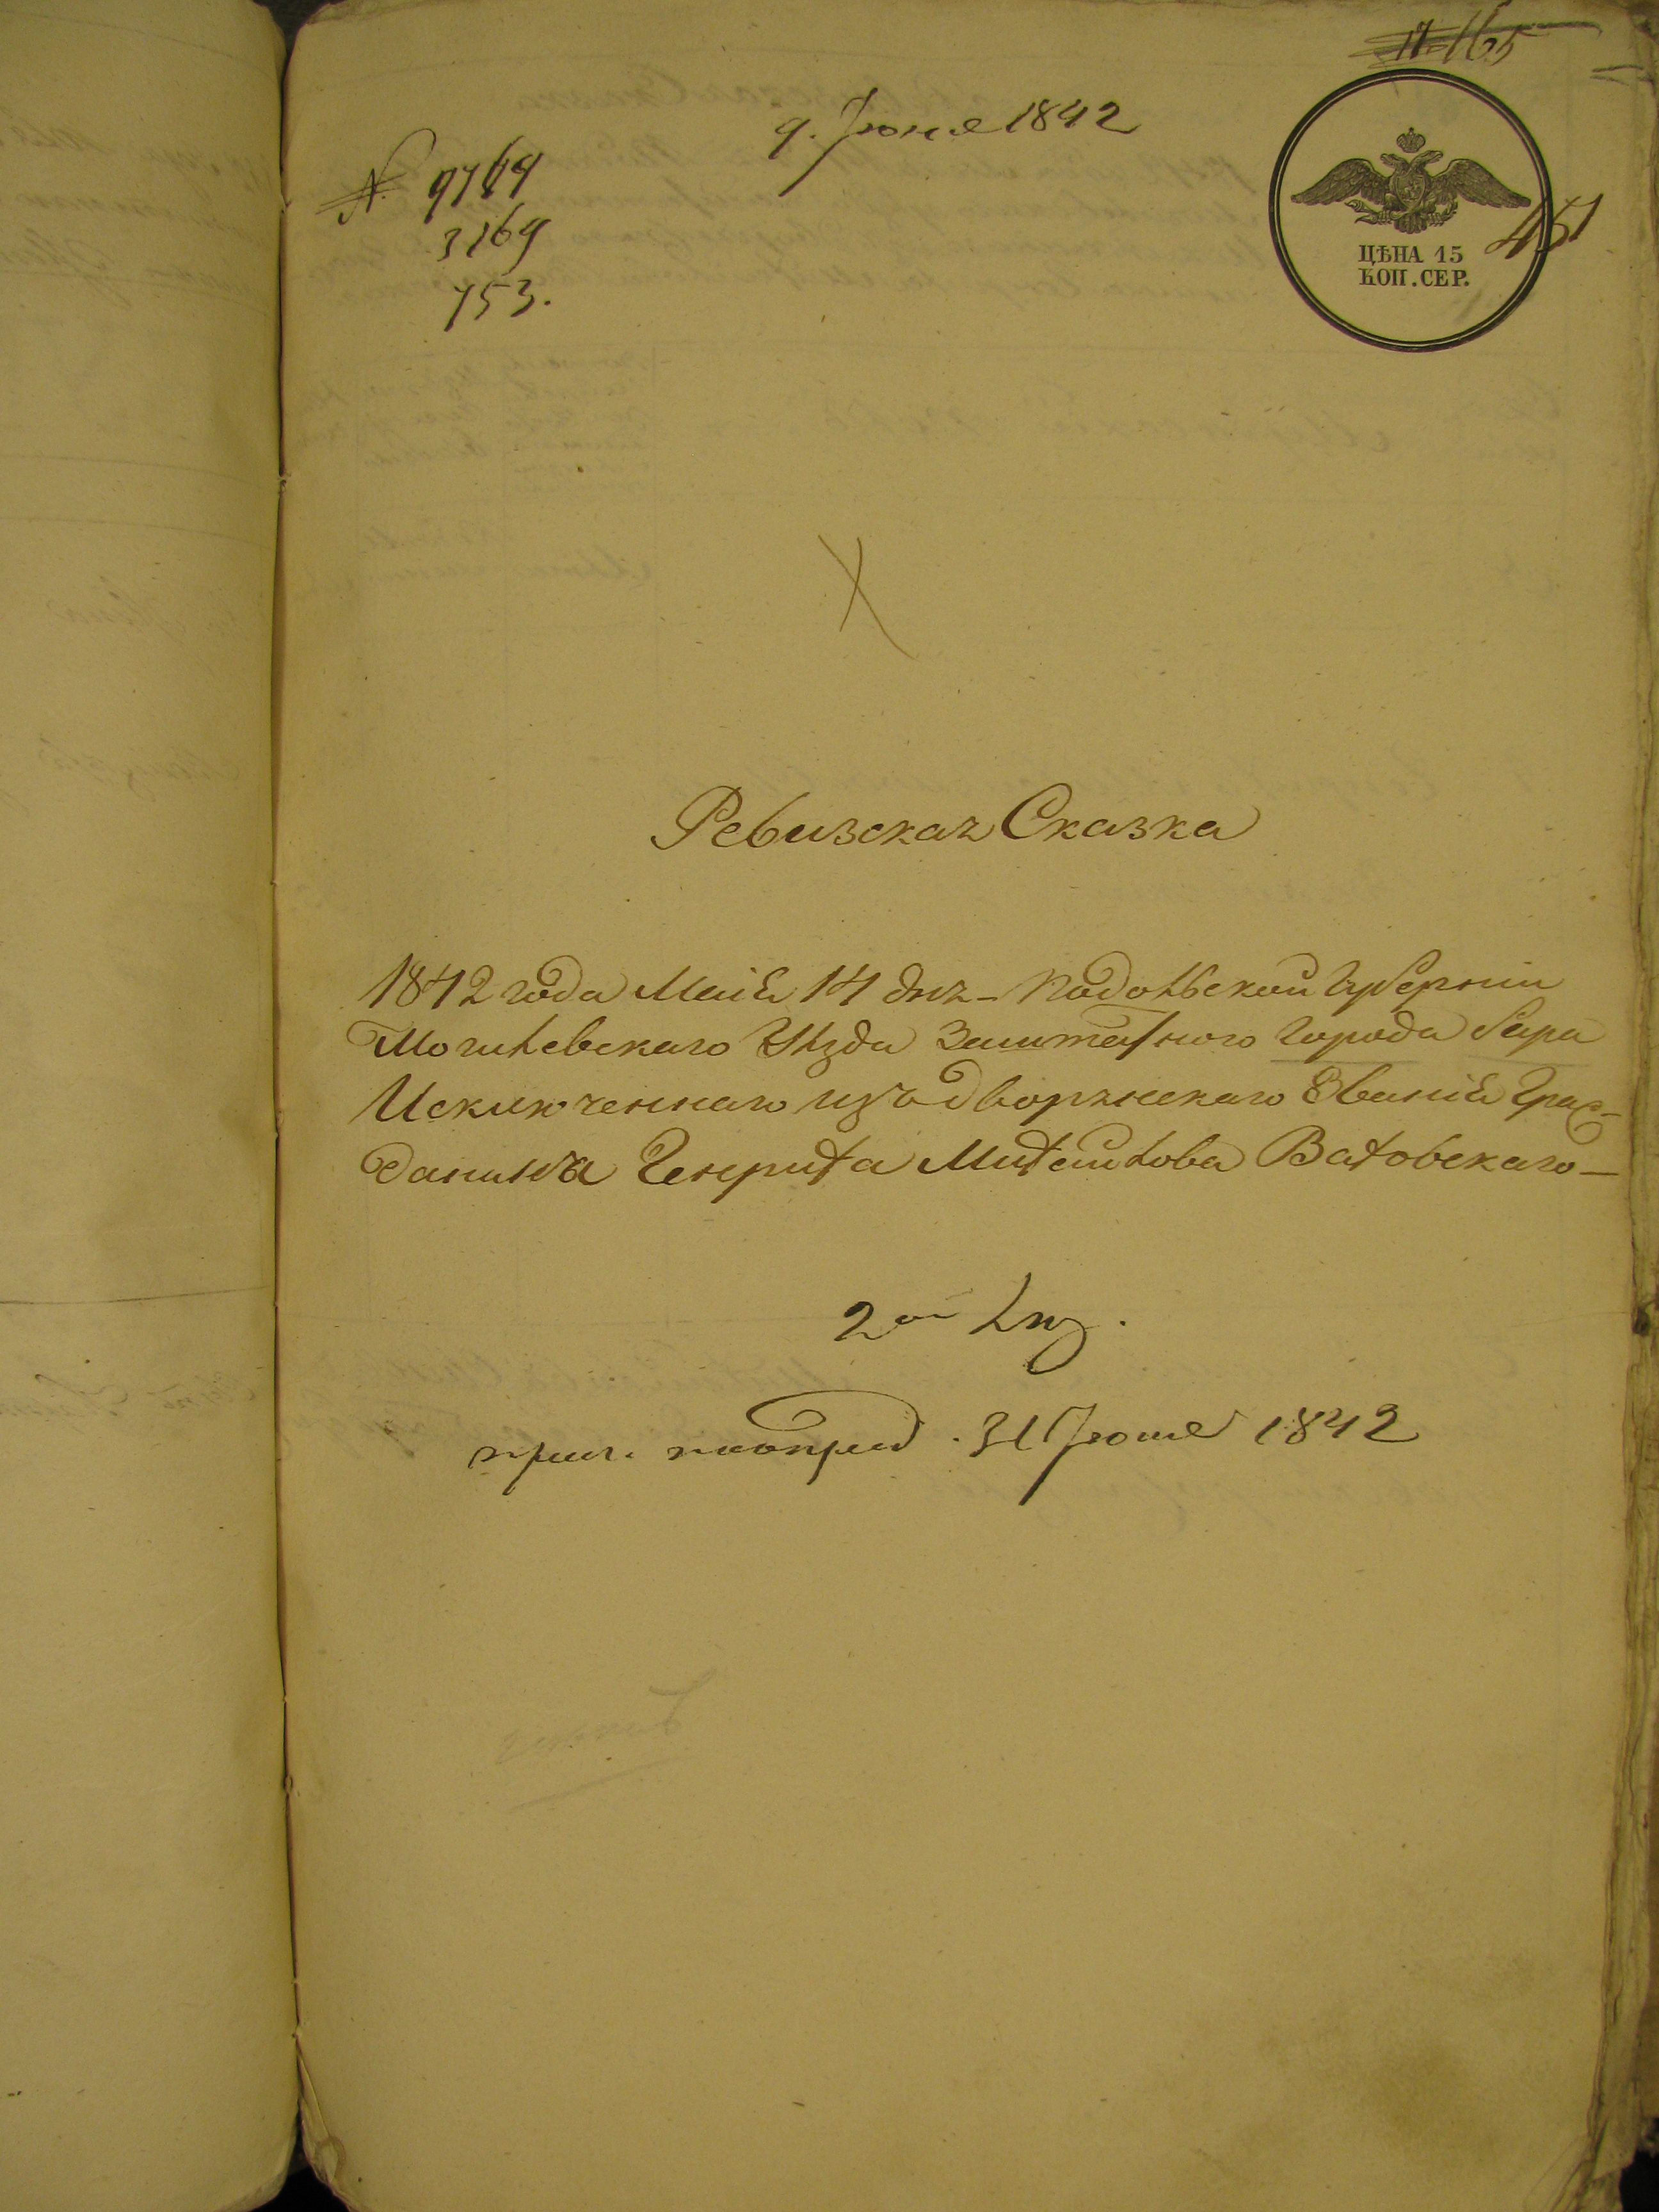 165
9. Июня 1842
№ 9769
3169
753.
451
ЦѢНА 15
КОП. СЕР.
Ревизская Сказка
1842 года Маія 14 дня – Подольской Губерніи
Могилевскаго Уѣзда Заштатного города Бара
Исключеннаго изъ дворянскаго Званія Граж-
данина Генриха Михайлова Ваховскаго –
2ой
1842